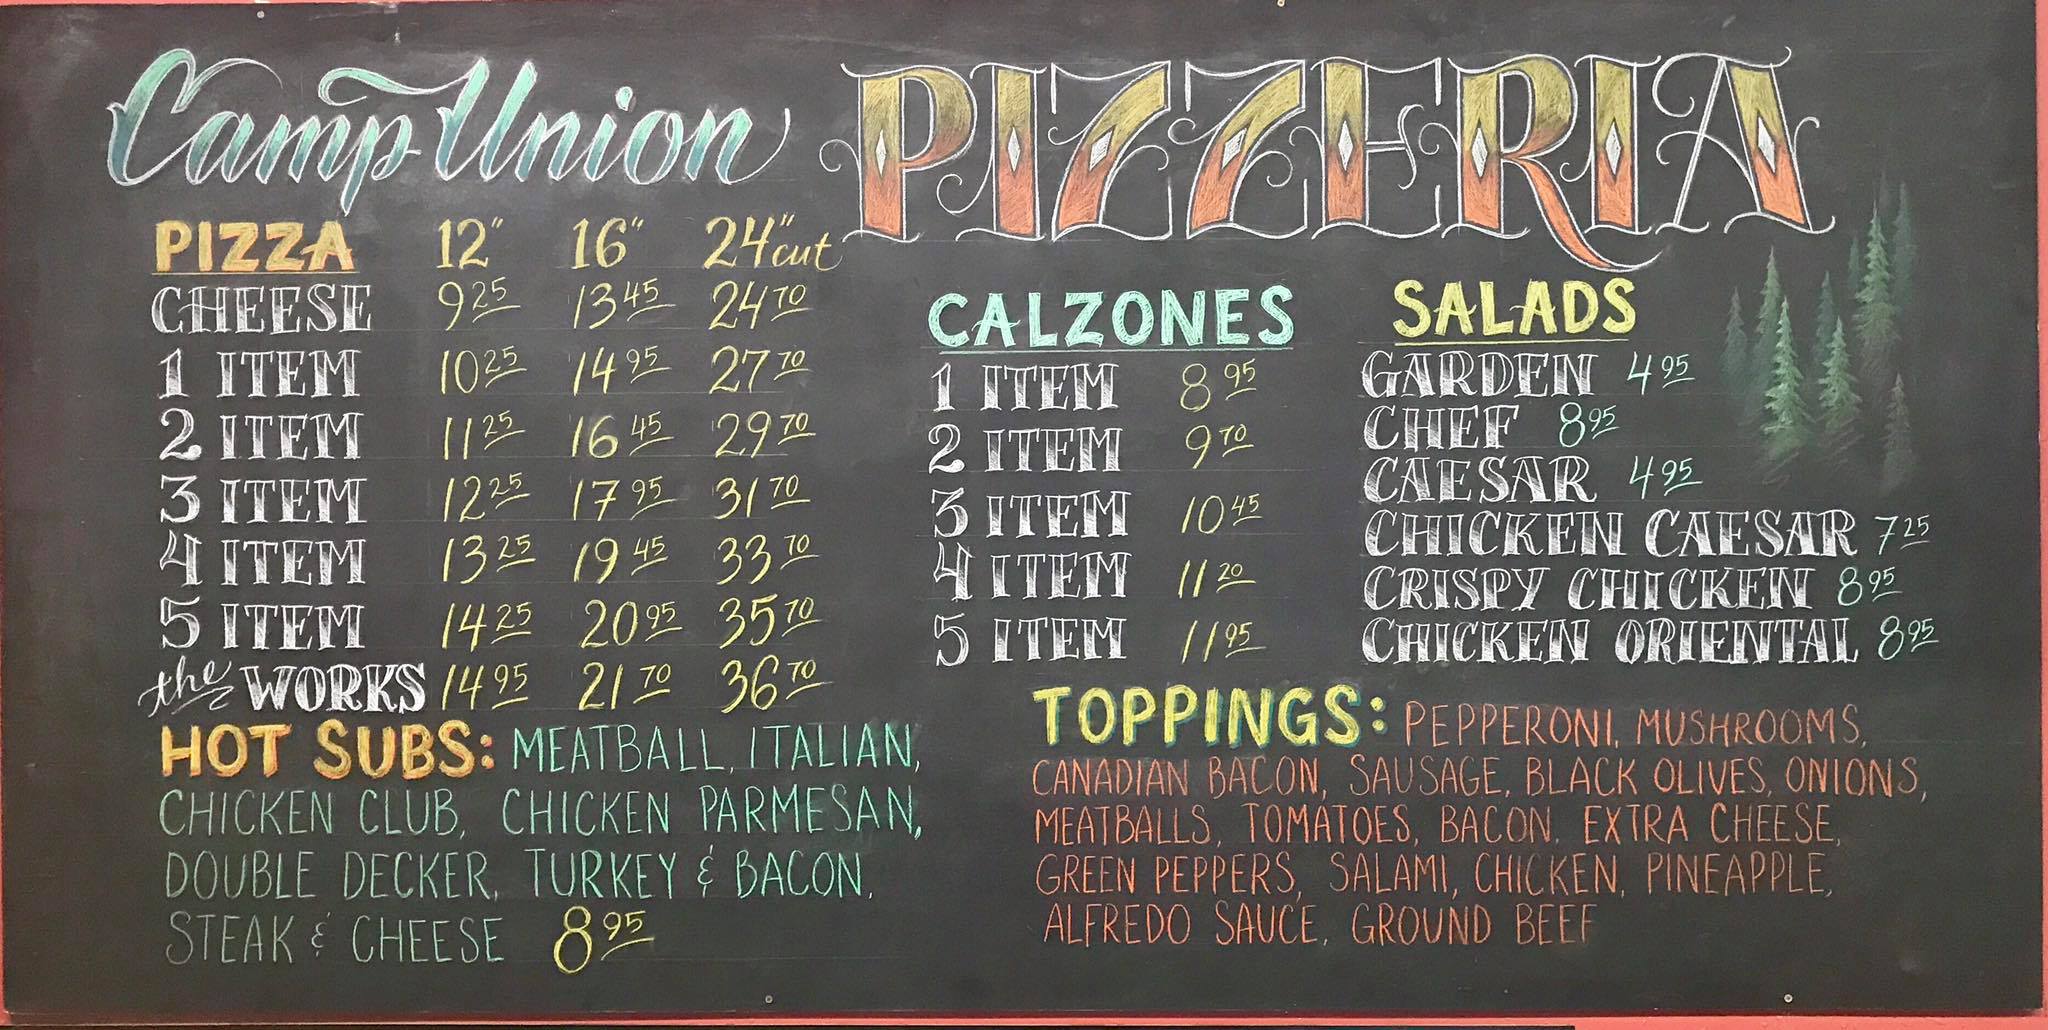 Camp Union PIZZERIA
PIZZA 12" 16" 24" cut
CHEESE 9 25 13 45 24 70
1 ITEM 10 25 14 95 27 70
2 ITEM 11 25 16 45 29 70
3 ITEM 12 25 17 95 31 70
4 ITEM 13 25 19 45 33 70
5 ITEM 14 25 20 95 35 70
the WORKS 14 95 21 70 36 70
HOT SUBS: MEATBALL, ITALIAN,
CHICKEN CLUB, CHICKEN PARMESAN,
DOUBLE DECKER, TURKEY & BACON,
STEAK & CHEESE 8 95
CALZONES
1 ITEM 8 95
2 ITEM 9 70
3 ITEM 10 45
4 ITEM 11 20
5 ITEM 11 95
SALADS
GARDEN 4 95
CHEF 8 95
CAESAR 4 95
CHICKEN CAESAR 7 25
CRISPY CHICKEN 8 95
CHICKEN ORIENTAL 8 95
TOPPINGS: PEPPERONI, MUSHROOMS,
CANADIAN BACON, SAUSAGE, BLACK OLIVES, ONIONS,
MEATBALLS, TOMATOES, BACON, EXTRA CHEESE,
GREEN PEPPERS, SALAMI, CHICKEN, PINEAPPLE,
ALFREDO SAUCE, GROUND BEEF